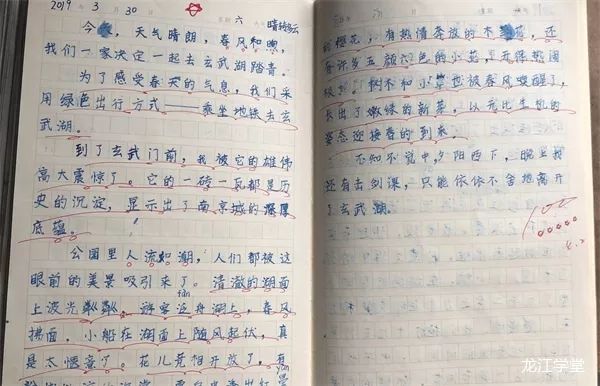 2019年 3月 30 六 晴转多云
今天，天气晴朗，春风和煦，
我们一家决定一起去玄武湖踏青。
为了感受春天的气息，我们采
用绿色出行方式——乘坐地铁去玄
武湖。
到了玄武门前，我被它的雄伟
高大震惊了。它的一砖一瓦都是历
史的沉淀，显示出了南京城的深厚
底蕴。
公园里人流如潮，人们都被这
眼前的美景吸引来了。清澈的湖面
上波光粼粼。游客泛舟湖上，春风
拂面。小船在湖面上随风起伏，真
是太惬意了。花儿竞相开放了，有
的樱花，有热情奔放的木 还
有许多五颜六色的小花，开得热闹
极 树木和小草也被春风唤醒了，
长出了嫩绿的新芽，以无比生机的
姿态迎接春的到来。
不知不觉中，夕阳西下，晚上我
还有击剑课，只能依依不舍地离开
了玄武湖。
龙江学堂